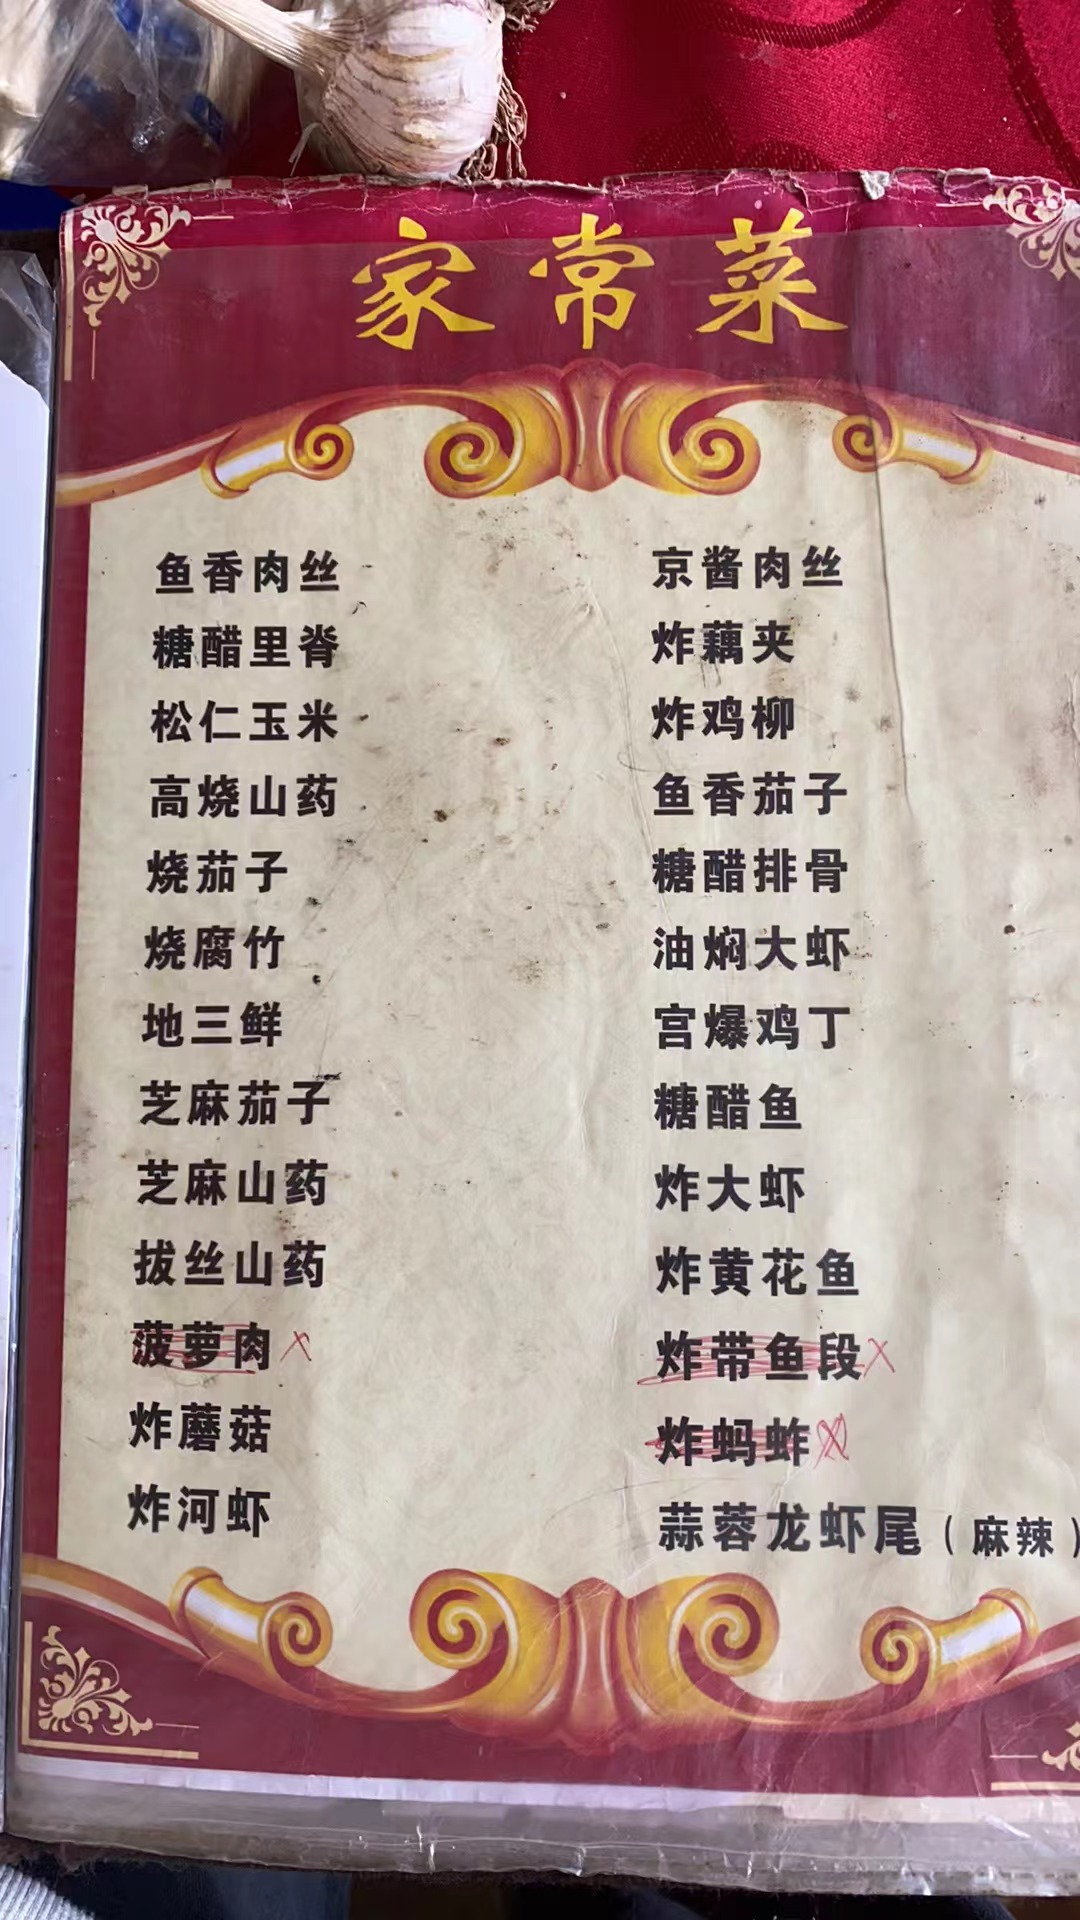 家常菜
鱼香肉丝
糖醋里脊
松仁玉米
高烧山药
烧茄子
烧腐竹
地三鲜
芝麻茄子
芝麻山药
拔丝山药
菠萝肉 X
炸蘑菇
炸河虾
京酱肉丝
炸藕夹
炸鸡柳
鱼香茄子
糖醋排骨
油焖大虾
宫爆鸡丁
糖醋鱼
炸大虾
炸黄花鱼
炸带鱼段 X
炸蚂蚱 X
蒜蓉龙虾尾（麻辣）